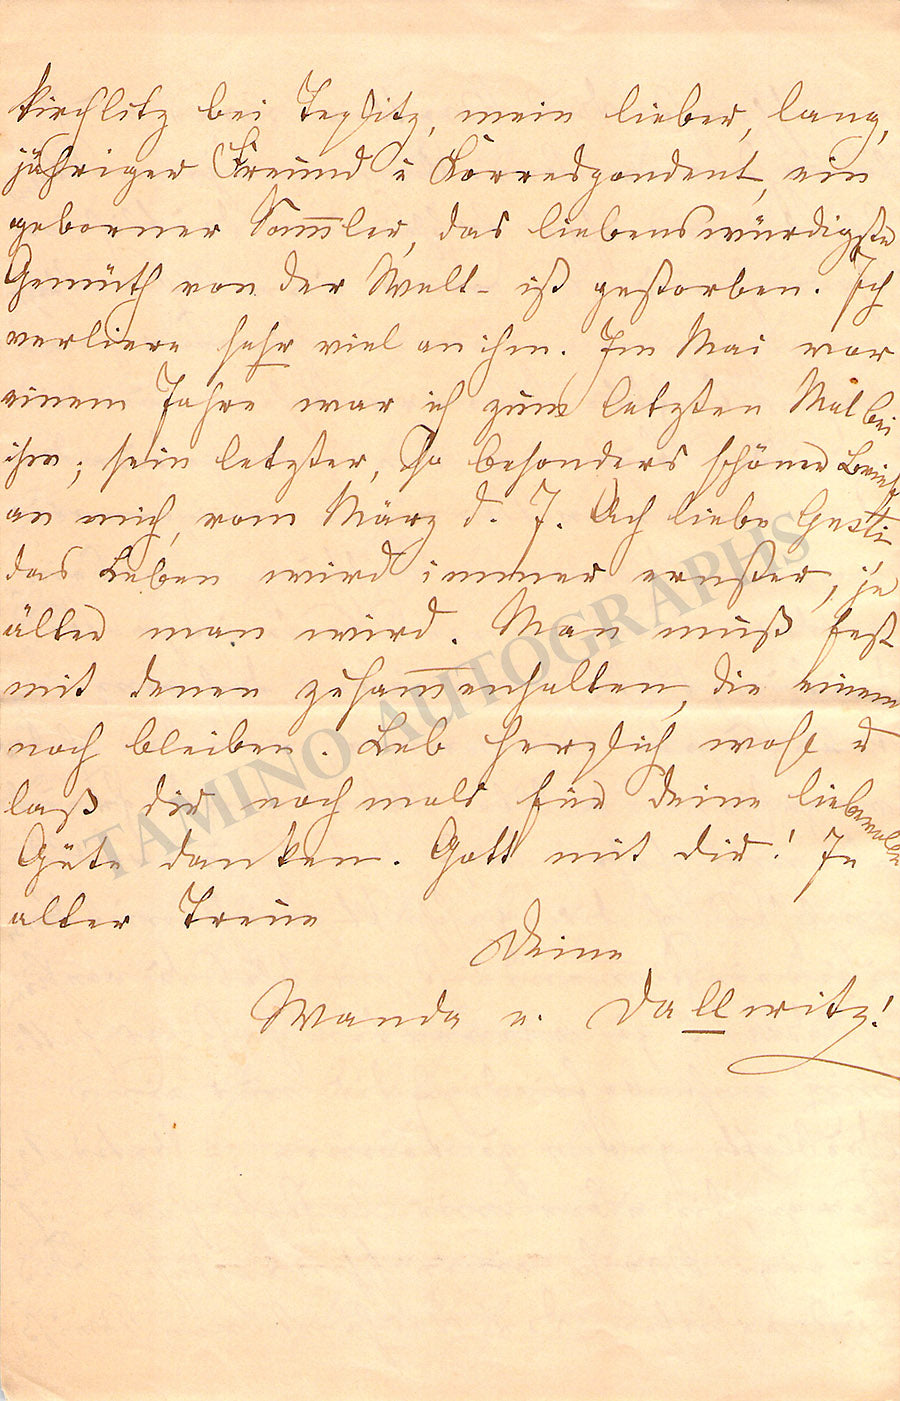 Kirchlitz bei Teplitz, mein lieber, lang,
jähriger Freund u Korrespondent, ein
geborner Sammler, das liebenswürdigste
Gemüth von der Welt - ist gestorben. Ich
verliere sehr viel an ihm. Im Mai vor
einem Jahre war ich zum letzten Mal bei
ihm; sein letzter, so besonders schöner Brief
an mich, vom März d. J. Ach liebe Gusti
das Leben wird immer ernster, je
älter man wird. Man muß fest
mit denen zusammenhalten, die einem
noch bleiben. Leb herzlich wohl u
laß dir nochmals für deine liebevolle
Güte danken. Gott mit dir! In
alter Treue
Deine
Wanda v. Dallwitz!
TAMINO AUTOGRAPHS